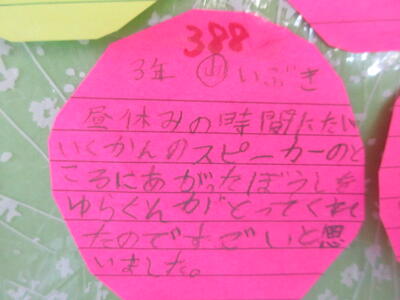 388
3年 ㊤いぶき
昼休みの時間にたい
いくかんのスピーカーのと
ころにあがったぼうしを
ゆらくんがとってくれ
たのですごいと思
いました。